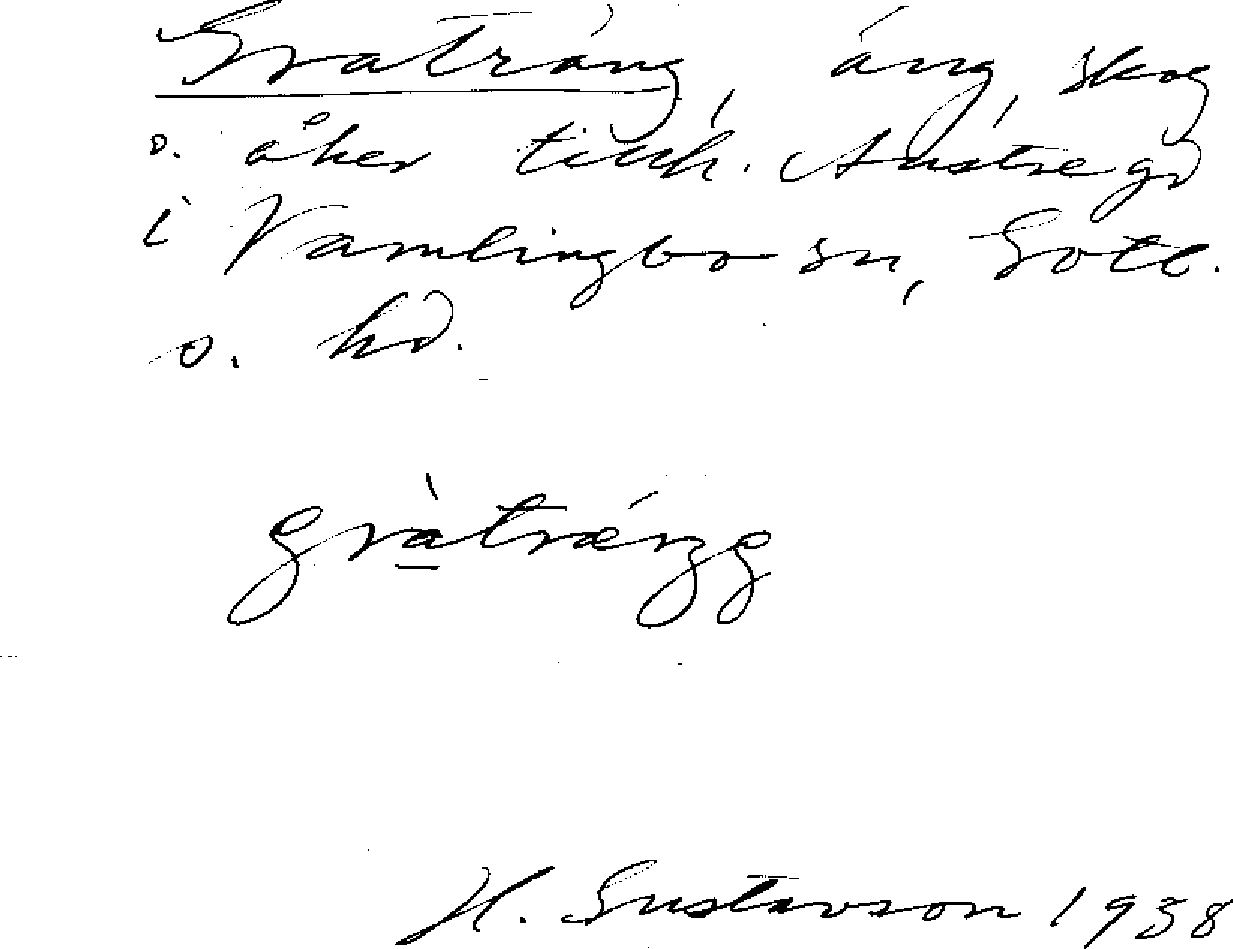 Graträng, äng, skog
o. åker tillh. Austre gd
i Vamlingbo sn, Gotl.
s. hd.
gràtrǽŋg
H. Gustavson 1938